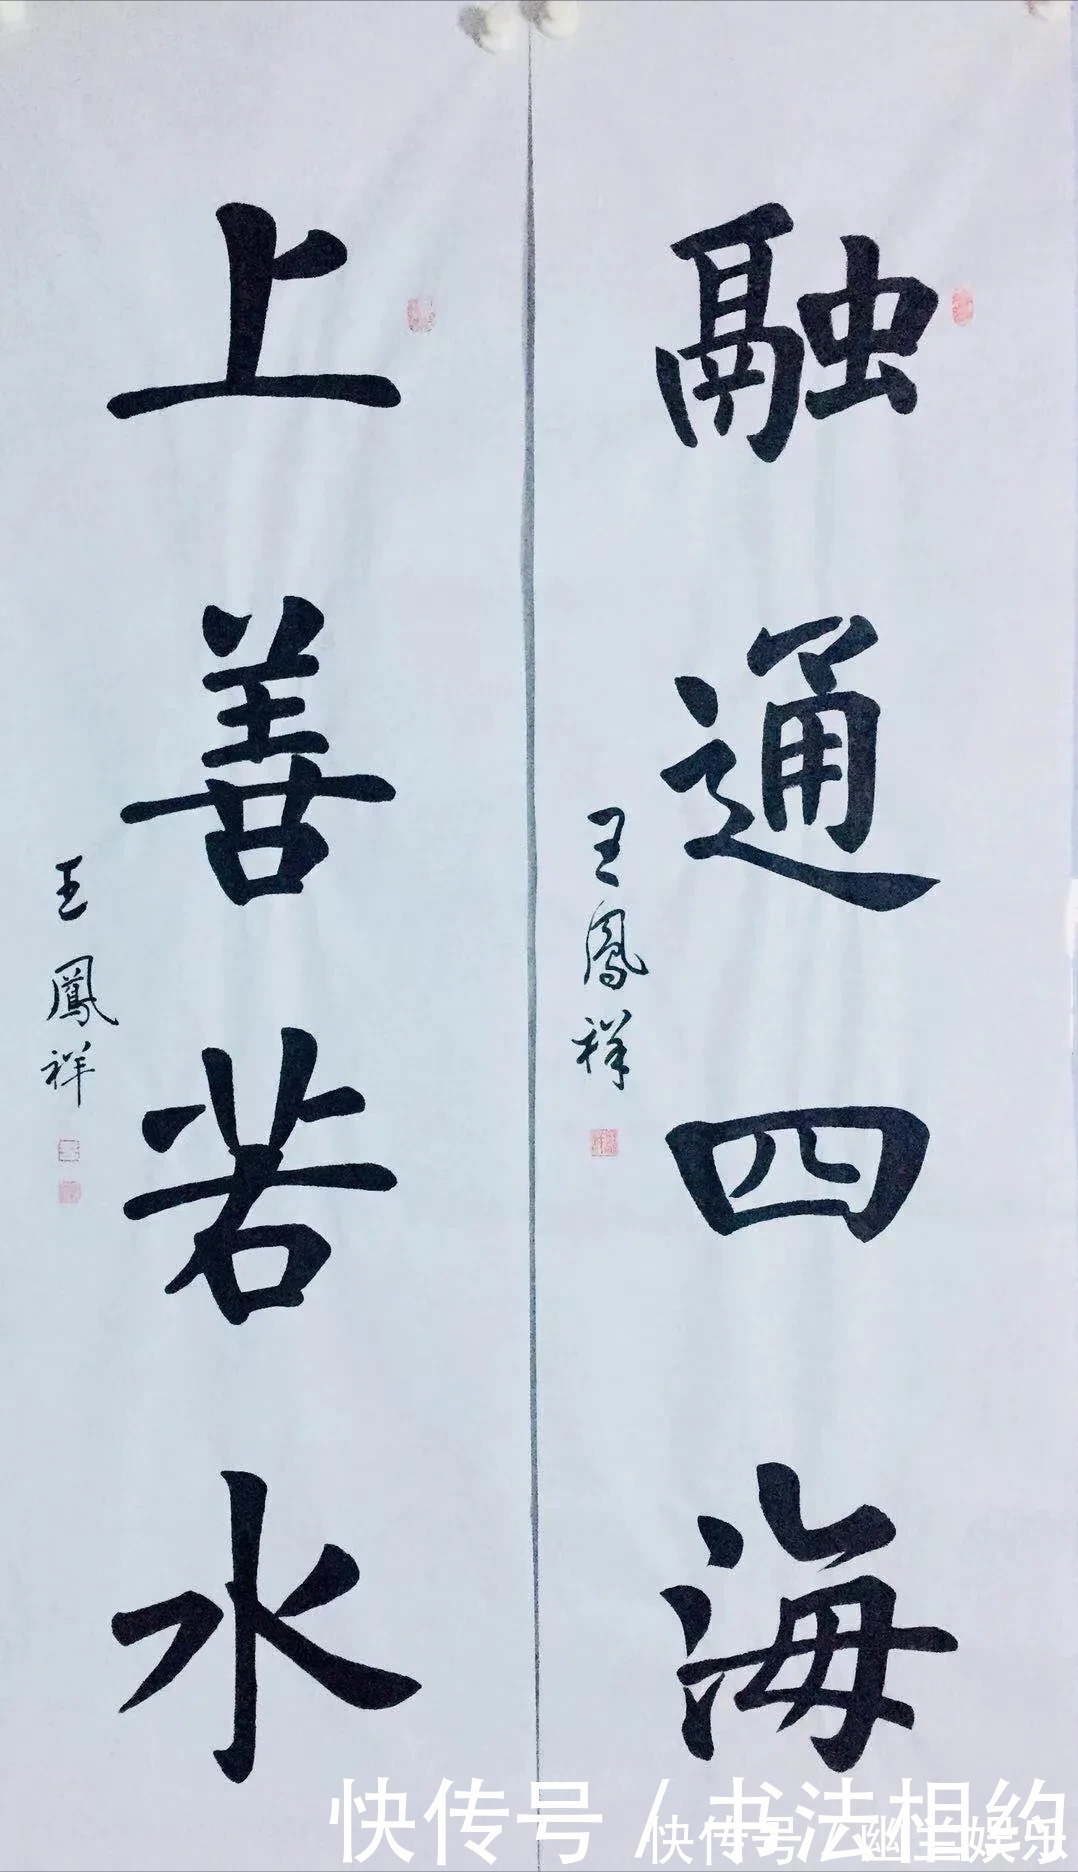 融通四海
王鳳祥
上善若水
王鳳祥
快传号/书法相约
快传号/幽兰娱乐